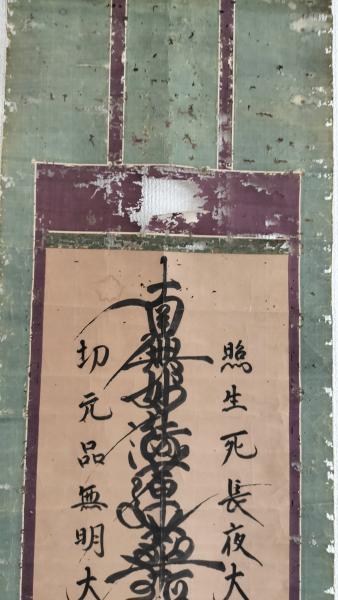 照生死長夜大
南無妙法蓮華経
切元品無明大